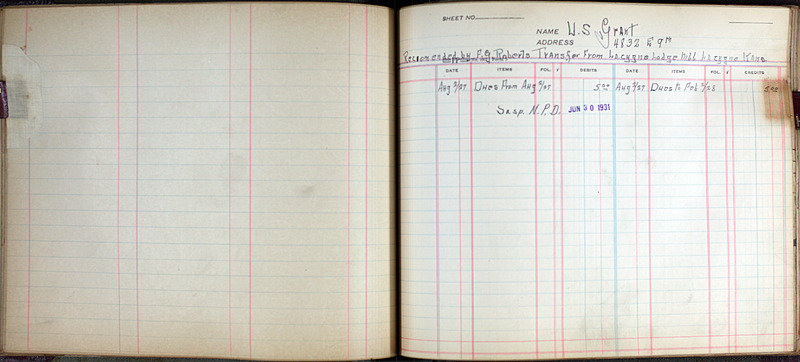 SHEET NO.
NAME U.S. Grant
ADDRESS 4832 E 9th
Recomended by F.G. Roberts Transfer From Lacygne Lodge Lacygne Kans
DATE ITEMS FOL. √ DEBITS DATE ITEMS FOL. √ CREDITS
Aug 2/27 Dues From Aug 2/27 5 00 Aug 2/27 Dues to Feb 2/28 5 00
Susp. N.P.D. JUN 30 1931